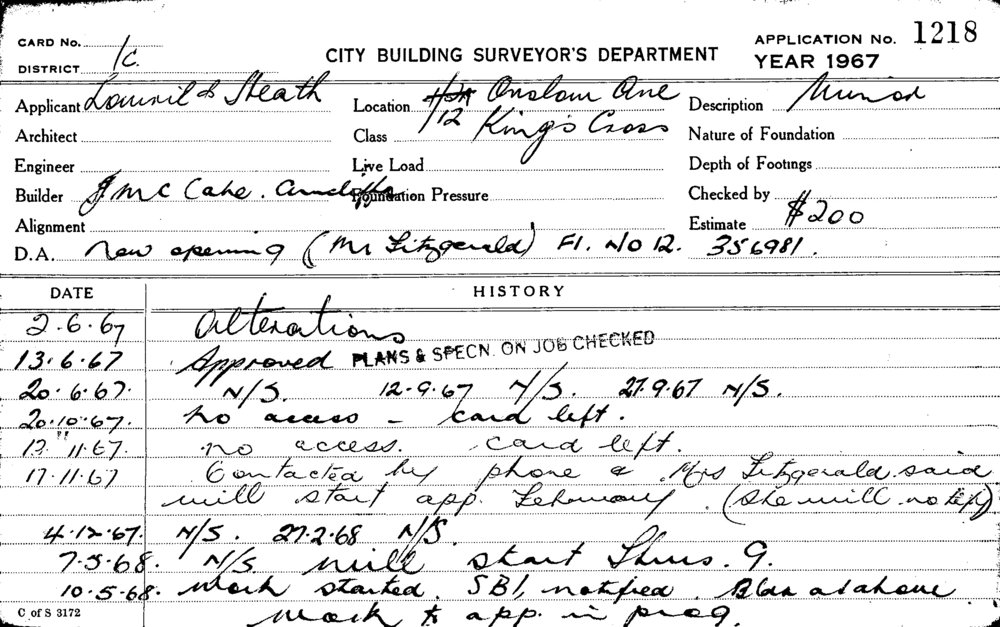 CARD No. 1c. CITY BUILDING SURVEYOR'S DEPARTMENT APPLICATION No. 1218
DISTRICT YEAR 1967
Applicant & Heath Location Onslow Ave Description Minor
Architect Class 12 King's Cross Nature of Foundation
Engineer Live Load Depth of Footings
Builder J Mc Cahe. Arncliffe Foundation Pressure Checked by
Alignment Estimate $200
D.A. New opening (Mr Fitzgerald) Fl. No 12. 356981.
DATE HISTORY
2.6.67 Alterations
13.6.67 Approved PLANS & SPECN. ON JOB CHECKED
20.6.67. N/S. 12.9.67 N/S. 27.9.67 N/S.
20.10.67. no access - card left.
13.11.67. no access. card left.
17.11.67 Contacted by phone & Mrs Fitzgerald said
will start app. February. (she will notify)
4.12.67. N/S. 27.2.68 N/S.
7.5.68. N/S will start Thurs. 9.
10.5.68. Work started. SBI, notified. as above
C of S 3172 work to app. in prog.